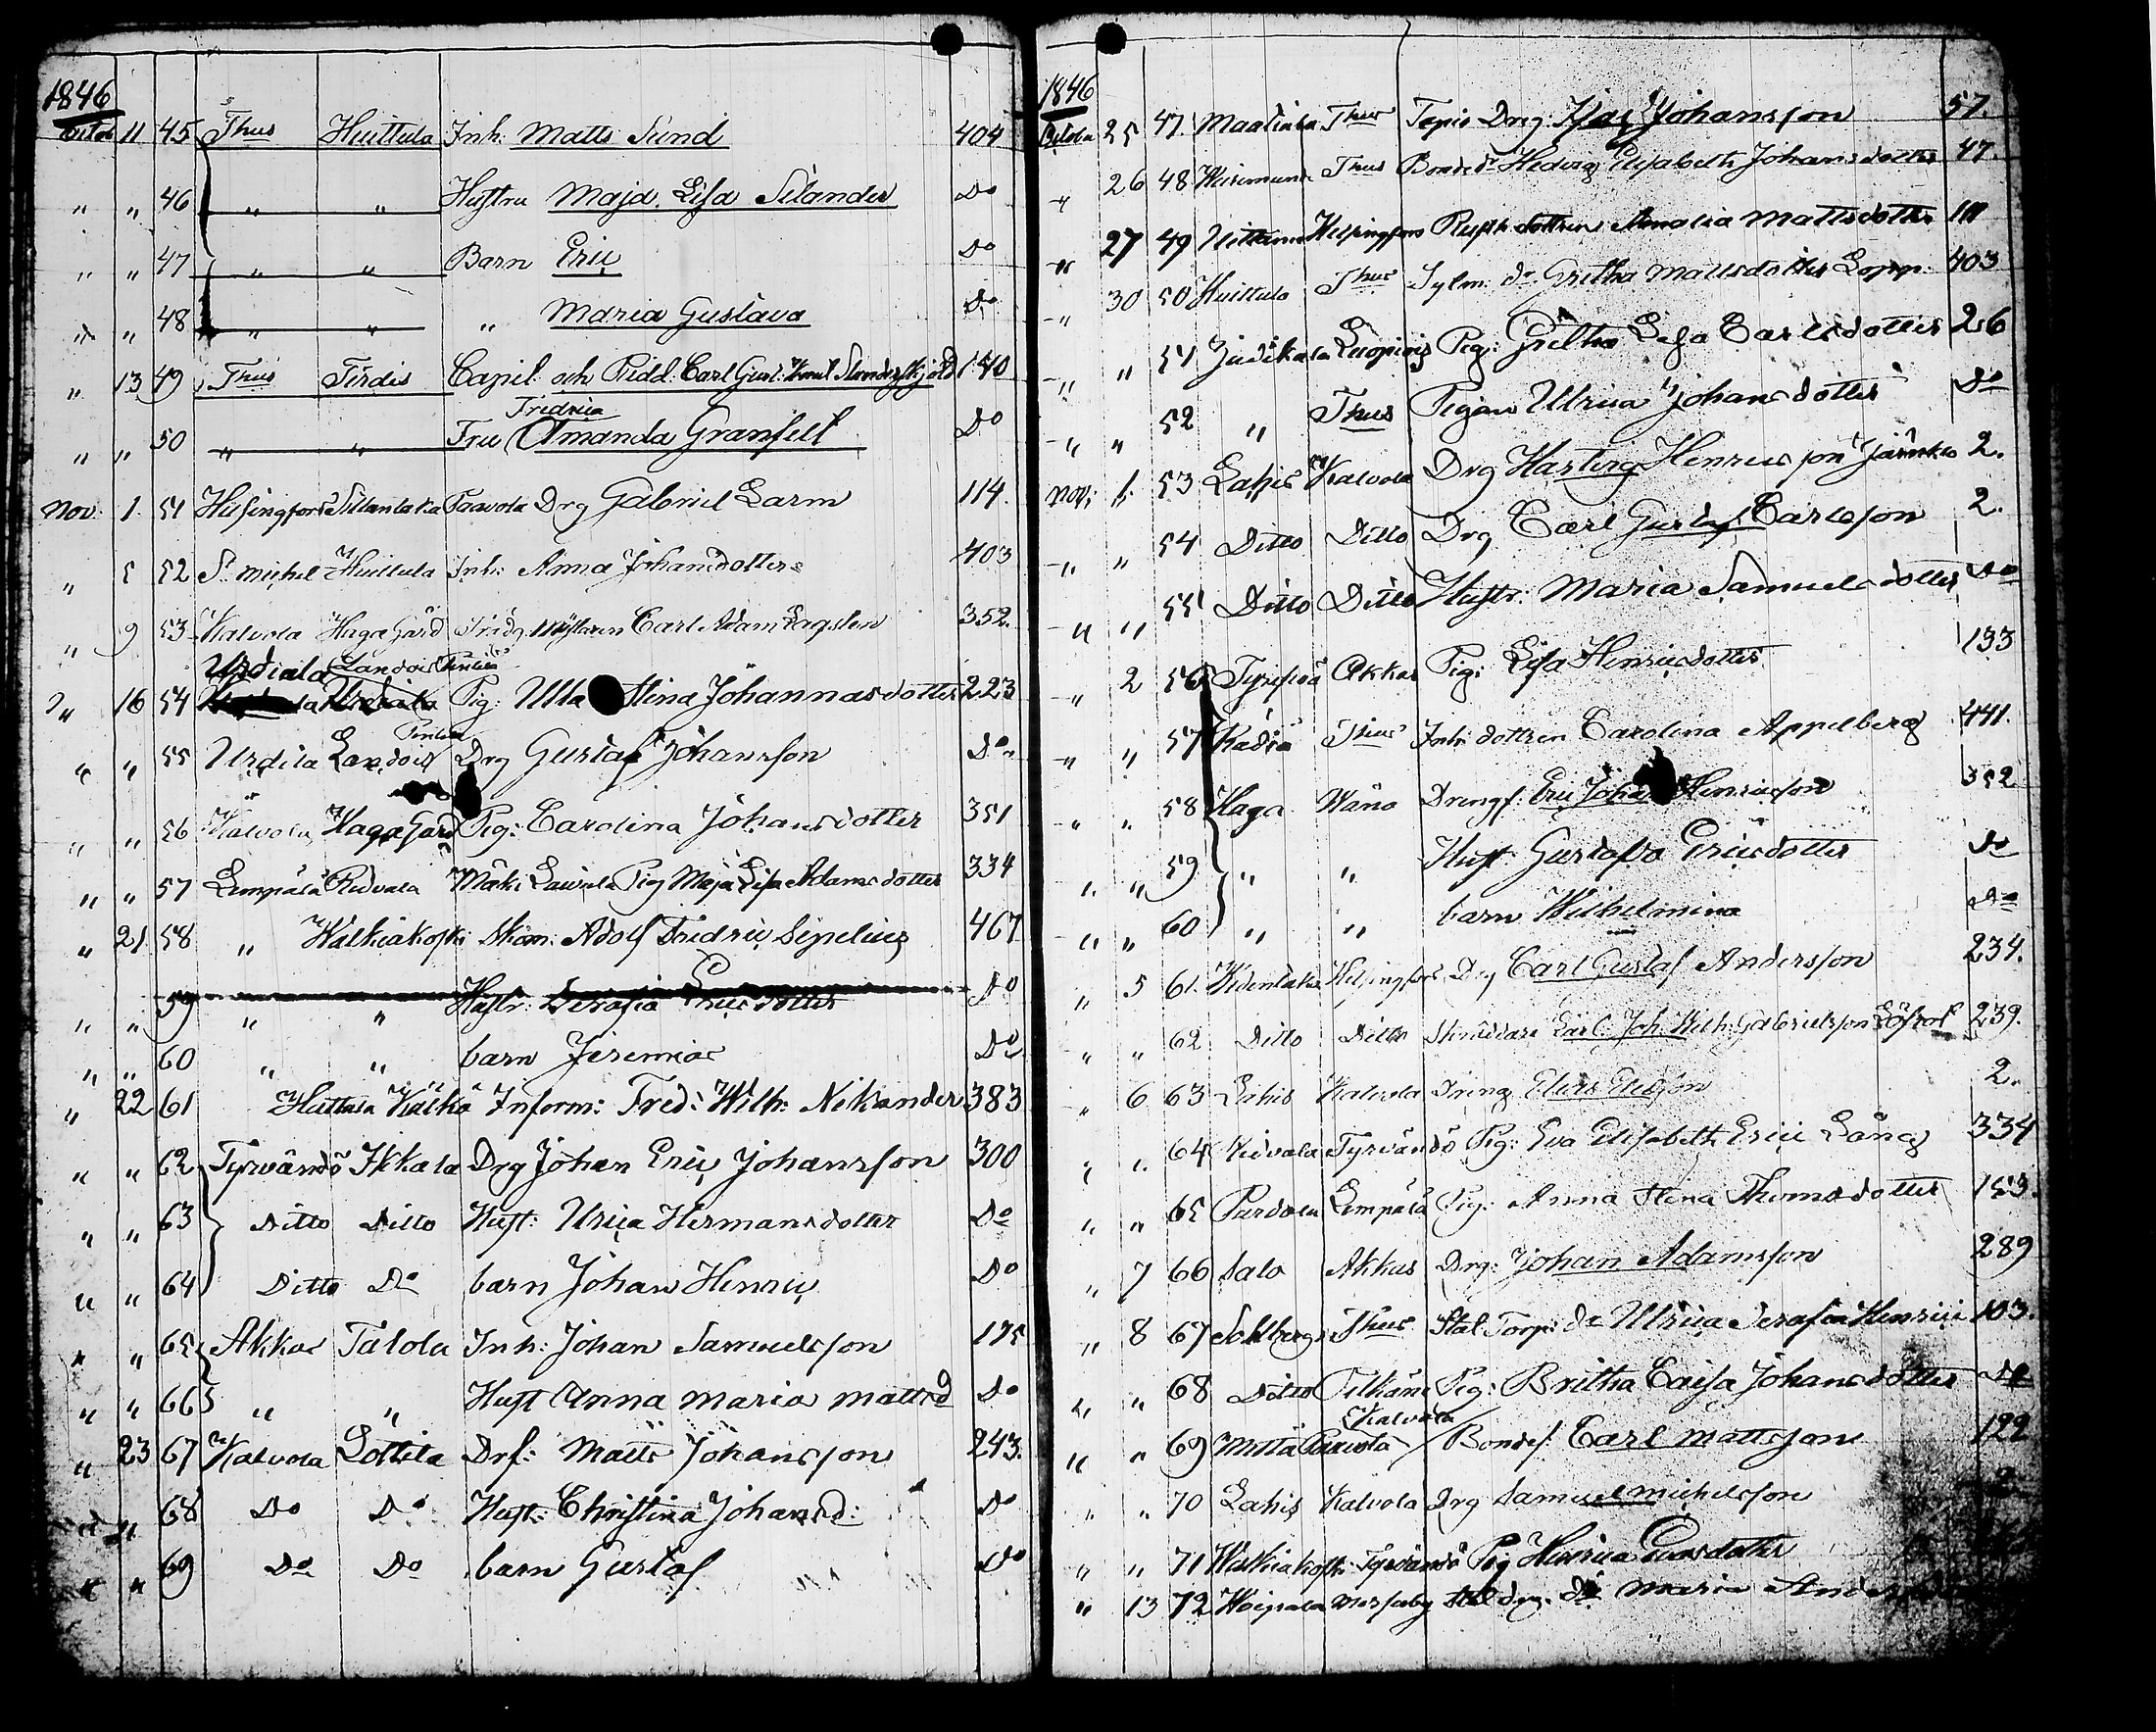 1846
Octob 11 45 Thus Huittula Inh: Matts Sund 404
" " 46 " " Hustru Maja Lisa Silander Do
" " 47 " " Barn Eric Do
" " 48 " " " Maria Gustava Do
" 13 49 Thus Tirdis Capit: och Ridd: Carl Gust: 140
Fredrica
" " 50 " " Fru Amanda Granfelt Do
Nov: 1. 51 Helsingfors Sillantaka Paavola Drg Gabriel Larm 114.
" 5 52 St Michel Huittula Inh: Anna Johansdotter 403
" 9 53 Kalvola Haga Gård Trädg. Mästaren Carl Adam Lagsten 352.
Urdiala Landois
" 16 54 Pig: Ulla Stina Johannasdotter 223
" " 55 Urdila Landois Drg Gustaf Johansson Do
" " 56 Kalvola Haga Gård Pig: Carolina Johansdotter 351
" " 57 Lempälä Ridvala Mäki Pig Maja Lisa Adamsdotter 334
" 21 58 " Walkiakoski Skom: Adolf Fredric Sipelius 467
" " 59 " " Hustr: Serafia Ericsdotter Do
" " 60 " " barn Jeremias Do
" 22 61 Huttula Kälkö Inform: Fred: Wilh: Nikander 383
" " 62 Tyrvändö Ikkala Drg Johan Eric Johansson 300
" " 63 Ditto Ditto Hust: Ulrica Hermansdotter Do
" " 64 Ditto Do barn Johan Henric Do
" " 65 Akkas Talola Inh: Johan Samuelsson 175
" " 66 " " Hust Anna Maria Mattsd Do
" 23 67 Kalvola Lottila Drf: Matts Johansson 243.
" " 68 Do Do Hust: Christina Johansd: Do
" " 69 Do Do barn Gustaf Do
1846
Octobr 25 47. Maatiala Thus Drg: Isac Johansson 57.
" 26 48 Thus Bonded: Hedvig Elisabeth Johansdotter 47.
" 27 49 Uittamo Helsingfors Rusth dottren Amalia Mattsdotter 111
" 30 50 Huittula Thus Dr Gretha Mattsdotter 403
" " 51 Judikala Luopiois Pig: Gretha Lisa Carlsdotter 26
" " 52 " Thus Pigan Ulrica Johansdotter Do
Nov: 1. 53 Lahis Kalvola Drg Henricsson 2.
" " 54 Ditto Ditto Drg Carl Gustaf Carlsson 2.
" " 55 Ditto Ditto Hustr: Maria Samuelsdotter Do
" 2 56 Akkas Pig: Lisa Henricsdotter 133
" " 57 Thus Inh: dottren Carolina Appelberg 441.
" " 58 Haga Wåno Drengs: Eric Johan Henricsson 352
" " 59 " " Hust: Gustafva Ericsdotter Do
" " 60 " " barn Wilhelmina Do
" 5 61. Helsingfors Drg Carl Gustaf Andersson 234.
" " 62 Ditto Ditto Skräddare Carl Joh: Wilh: Gabrielsson Löfrot 239.
" 6 63 Lahis Kalvola Dreng Elias Eliasson 2.
" " 64 Ridvala Tyrvändö Pig: Eva Elisabeth Eric Lång 334
" " 65 Lempälä Pig: Anna Stina Thomasdotter 153.
" 7 66 Salo Akkas Drg: Johan Adamsson 289
" 8 67 Sohlberg Thus Stal: Torp: Dr Ulrica Serafia Henrici 103.
" " 68 Ditto Pelkäne Pig: Britha Caisa Johansdotter Do
Kalvola
" " 69 Metta Bondes: Carl Mattsson 122
" " 70 Lahis Kalvola Drg Samuel Michelsson 2
" " 71 Walkiakoski Tyrvändö Pig Henrica
" 13 72 Woipala Dr Maria